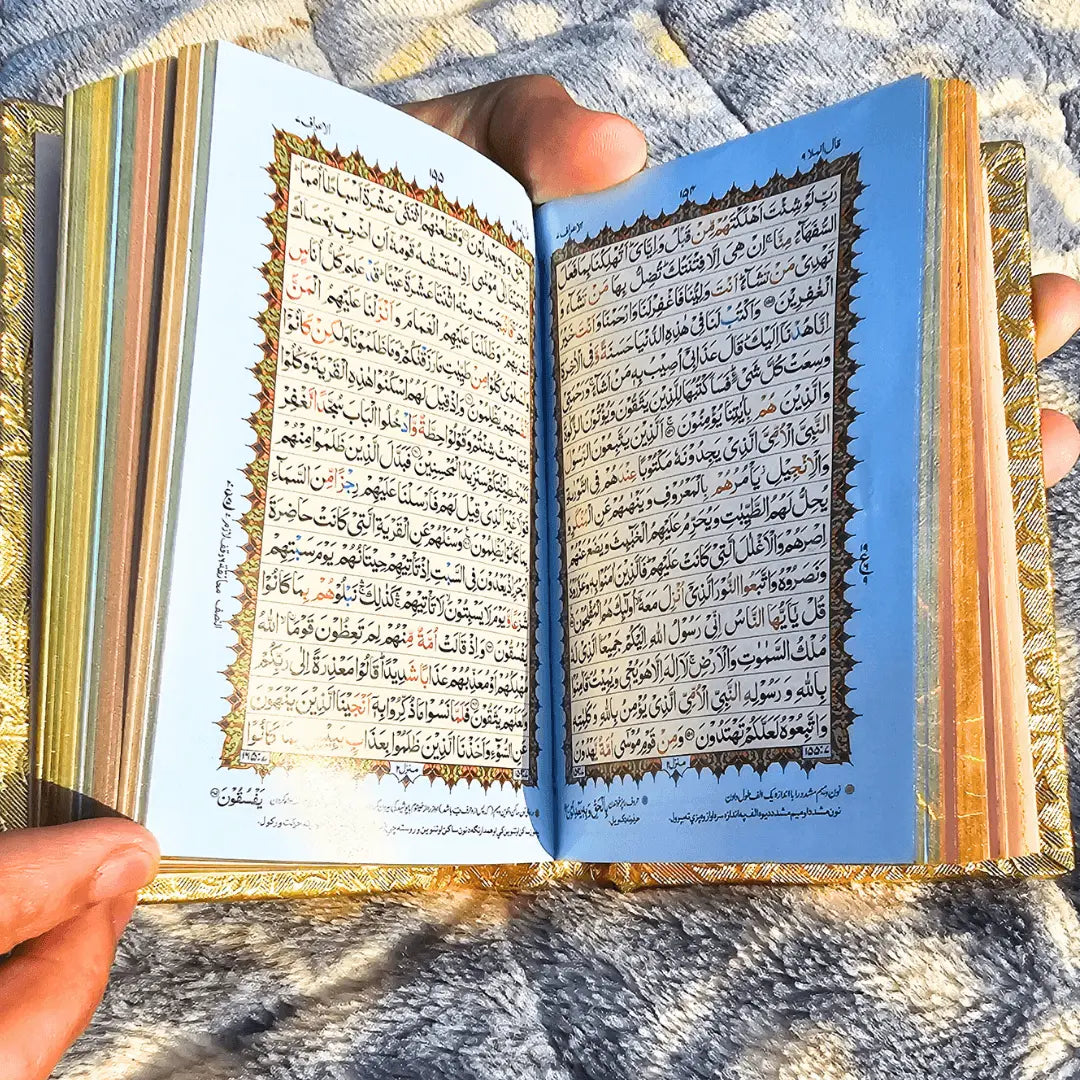 قال الملا ٩
١٥٤
الاعراف ٧
رَبِّ لَوْ شِئْتَ اَهْلَكْتَهُمْ مِّنْ قَبْلُ وَاِيَّايَ اَتُهْلِكُنَا بِمَا فَعَلَ
السُّفَهَآءُ مِنَّا اِنْ هِيَ اِلَّا فِتْنَتُكَ تُضِلُّ بِهَا مَنْ تَشَآءُ وَ
تَهْدِيْ مَنْ تَشَآءُ اَنْتَ وَلِيُّنَا فَاغْفِرْ لَنَا وَارْحَمْنَا وَاَنْتَ خَيْرُ
الْغٰفِرِيْنَ وَاكْتُبْ لَنَا فِيْ هٰذِهِ الدُّنْيَا حَسَنَةً وَّفِي الْاٰخِرَةِ
اِنَّا هُدْنَا اِلَيْكَ قَالَ عَذَابِيْ اُصِيْبُ بِهٖ مَنْ اَشَآءُ وَرَحْمَتِيْ
وَسِعَتْ كُلَّ شَيْءٍ فَسَاَكْتُبُهَا لِلَّذِيْنَ يَتَّقُوْنَ وَيُؤْتُوْنَ الزَّكٰوةَ
وَالَّذِيْنَ هُمْ بِاٰيٰتِنَا يُؤْمِنُوْنَ اَلَّذِيْنَ يَتَّبِعُوْنَ الرَّسُوْلَ
النَّبِيَّ الْاُمِّيَّ الَّذِيْ يَجِدُوْنَهٗ مَكْتُوْبًا عِنْدَهُمْ فِي التَّوْرٰىةِ
وَالْاِنْجِيْلِ يَاْمُرُهُمْ بِالْمَعْرُوْفِ وَيَنْهٰىهُمْ عَنِ الْمُنْكَرِ وَ
يُحِلُّ لَهُمُ الطَّيِّبٰتِ وَيُحَرِّمُ عَلَيْهِمُ الْخَبٰٓئِثَ وَيَضَعُ عَنْهُمْ
اِصْرَهُمْ وَالْاَغْلٰلَ الَّتِيْ كَانَتْ عَلَيْهِمْ فَالَّذِيْنَ اٰمَنُوْا بِهٖ وَعَزَّرُوْهُ
وَنَصَرُوْهُ وَاتَّبَعُوا النُّوْرَ الَّذِيْ اُنْزِلَ مَعَهٗ اُولٰٓئِكَ هُمُ الْمُفْلِحُوْنَ
قُلْ يٰٓاَيُّهَا النَّاسُ اِنِّيْ رَسُوْلُ اللّٰهِ اِلَيْكُمْ جَمِيْعًا الَّذِيْ لَهٗ
مُلْكُ السَّمٰوٰتِ وَالْاَرْضِ لَآ اِلٰهَ اِلَّا هُوَ يُحْيٖ وَيُمِيْتُ فَاٰمِنُوْا
بِاللّٰهِ وَرَسُوْلِهِ النَّبِيِّ الْاُمِّيِّ الَّذِيْ يُؤْمِنُ بِاللّٰهِ وَكَلِمٰتِهٖ
وَاتَّبِعُوْهُ لَعَلَّكُمْ تَهْتَدُوْنَ وَمِنْ قَوْمِ مُوْسٰٓى اُمَّةٌ يَّهْدُوْنَ
منزل ٢
الاعراف ٧
١٥٥
وَبِهٖ يَعْدِلُوْنَ وَقَطَّعْنٰهُمُ اثْنَتَيْ عَشْرَةَ اَسْبَاطًا اُمَمًا
اِلٰى مُوْسٰٓى اِذِ اسْتَسْقٰىهُ قَوْمُهٗٓ اَنِ اضْرِبْ بِّعَصَاكَ
فَانْۢبَجَسَتْ مِنْهُ اثْنَتَا عَشْرَةَ عَيْنًا قَدْ عَلِمَ كُلُّ اُنَاسٍ
وَظَلَّلْنَا عَلَيْهِمُ الْغَمَامَ وَاَنْزَلْنَا عَلَيْهِمُ الْمَنَّ
كُلُوْا مِنْ طَيِّبٰتِ مَا رَزَقْنٰكُمْ وَمَا ظَلَمُوْنَا وَلٰكِنْ كَانُوْٓا
يَظْلِمُوْنَ وَاِذْ قِيْلَ لَهُمُ اسْكُنُوْا هٰذِهِ الْقَرْيَةَ وَكُلُوْا
حَيْثُ شِئْتُمْ وَقُوْلُوْا حِطَّةٌ وَّادْخُلُوا الْبَابَ سُجَّدًا نَّغْفِرْ
سَنَزِيْدُ الْمُحْسِنِيْنَ فَبَدَّلَ الَّذِيْنَ ظَلَمُوْا مِنْهُمْ
غَيْرَ الَّذِيْ قِيْلَ لَهُمْ فَاَرْسَلْنَا عَلَيْهِمْ رِجْزًا مِّنَ السَّمَآءِ
كَانُوْا يَظْلِمُوْنَ وَسْئَلْهُمْ عَنِ الْقَرْيَةِ الَّتِيْ كَانَتْ حَاضِرَةَ
اِذْ يَعْدُوْنَ فِي السَّبْتِ اِذْ تَاْتِيْهِمْ حِيْتَانُهُمْ يَوْمَ سَبْتِهِمْ
شُرَّعًا وَّيَوْمَ لَا يَسْبِتُوْنَ لَا تَاْتِيْهِمْ كَذٰلِكَ نَبْلُوْهُمْ بِمَا كَانُوْا
يَفْسُقُوْنَ وَاِذْ قَالَتْ اُمَّةٌ مِّنْهُمْ لِمَ تَعِظُوْنَ قَوْمًا اللّٰهُ
مُهْلِكُهُمْ اَوْ مُعَذِّبُهُمْ عَذَابًا شَدِيْدًا قَالُوْا مَعْذِرَةً اِلٰى رَبِّكُمْ
وَلَعَلَّهُمْ يَتَّقُوْنَ فَلَمَّا نَسُوْا مَا ذُكِّرُوْا بِهٖٓ اَنْجَيْنَا الَّذِيْنَ يَنْهَوْنَ
عَنِ السُّوْٓءِ وَاَخَذْنَا الَّذِيْنَ ظَلَمُوْا بِعَذَابٍۭ بَئِيْسٍۭ بِمَا كَانُوْا
منزل ٢
يَفْسُقُوْنَ